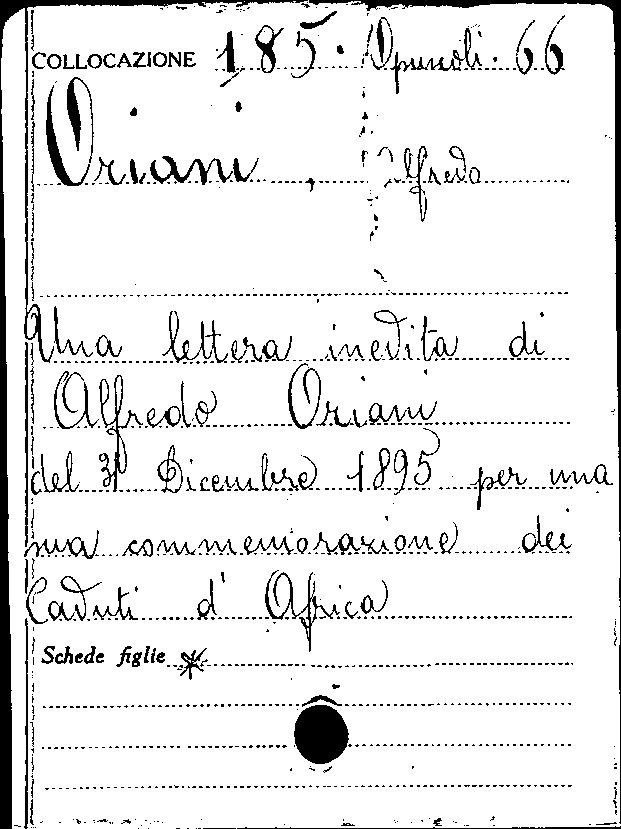 COLLOCAZIONE 185. Opuscoli. 66
Oriani, Alfredo
Una lettera inedita di
Alfredo Oriani
del 31 Dicembre 1895 per una
sua commemorazione dei
Caduti d'Africa
Schede figlie *